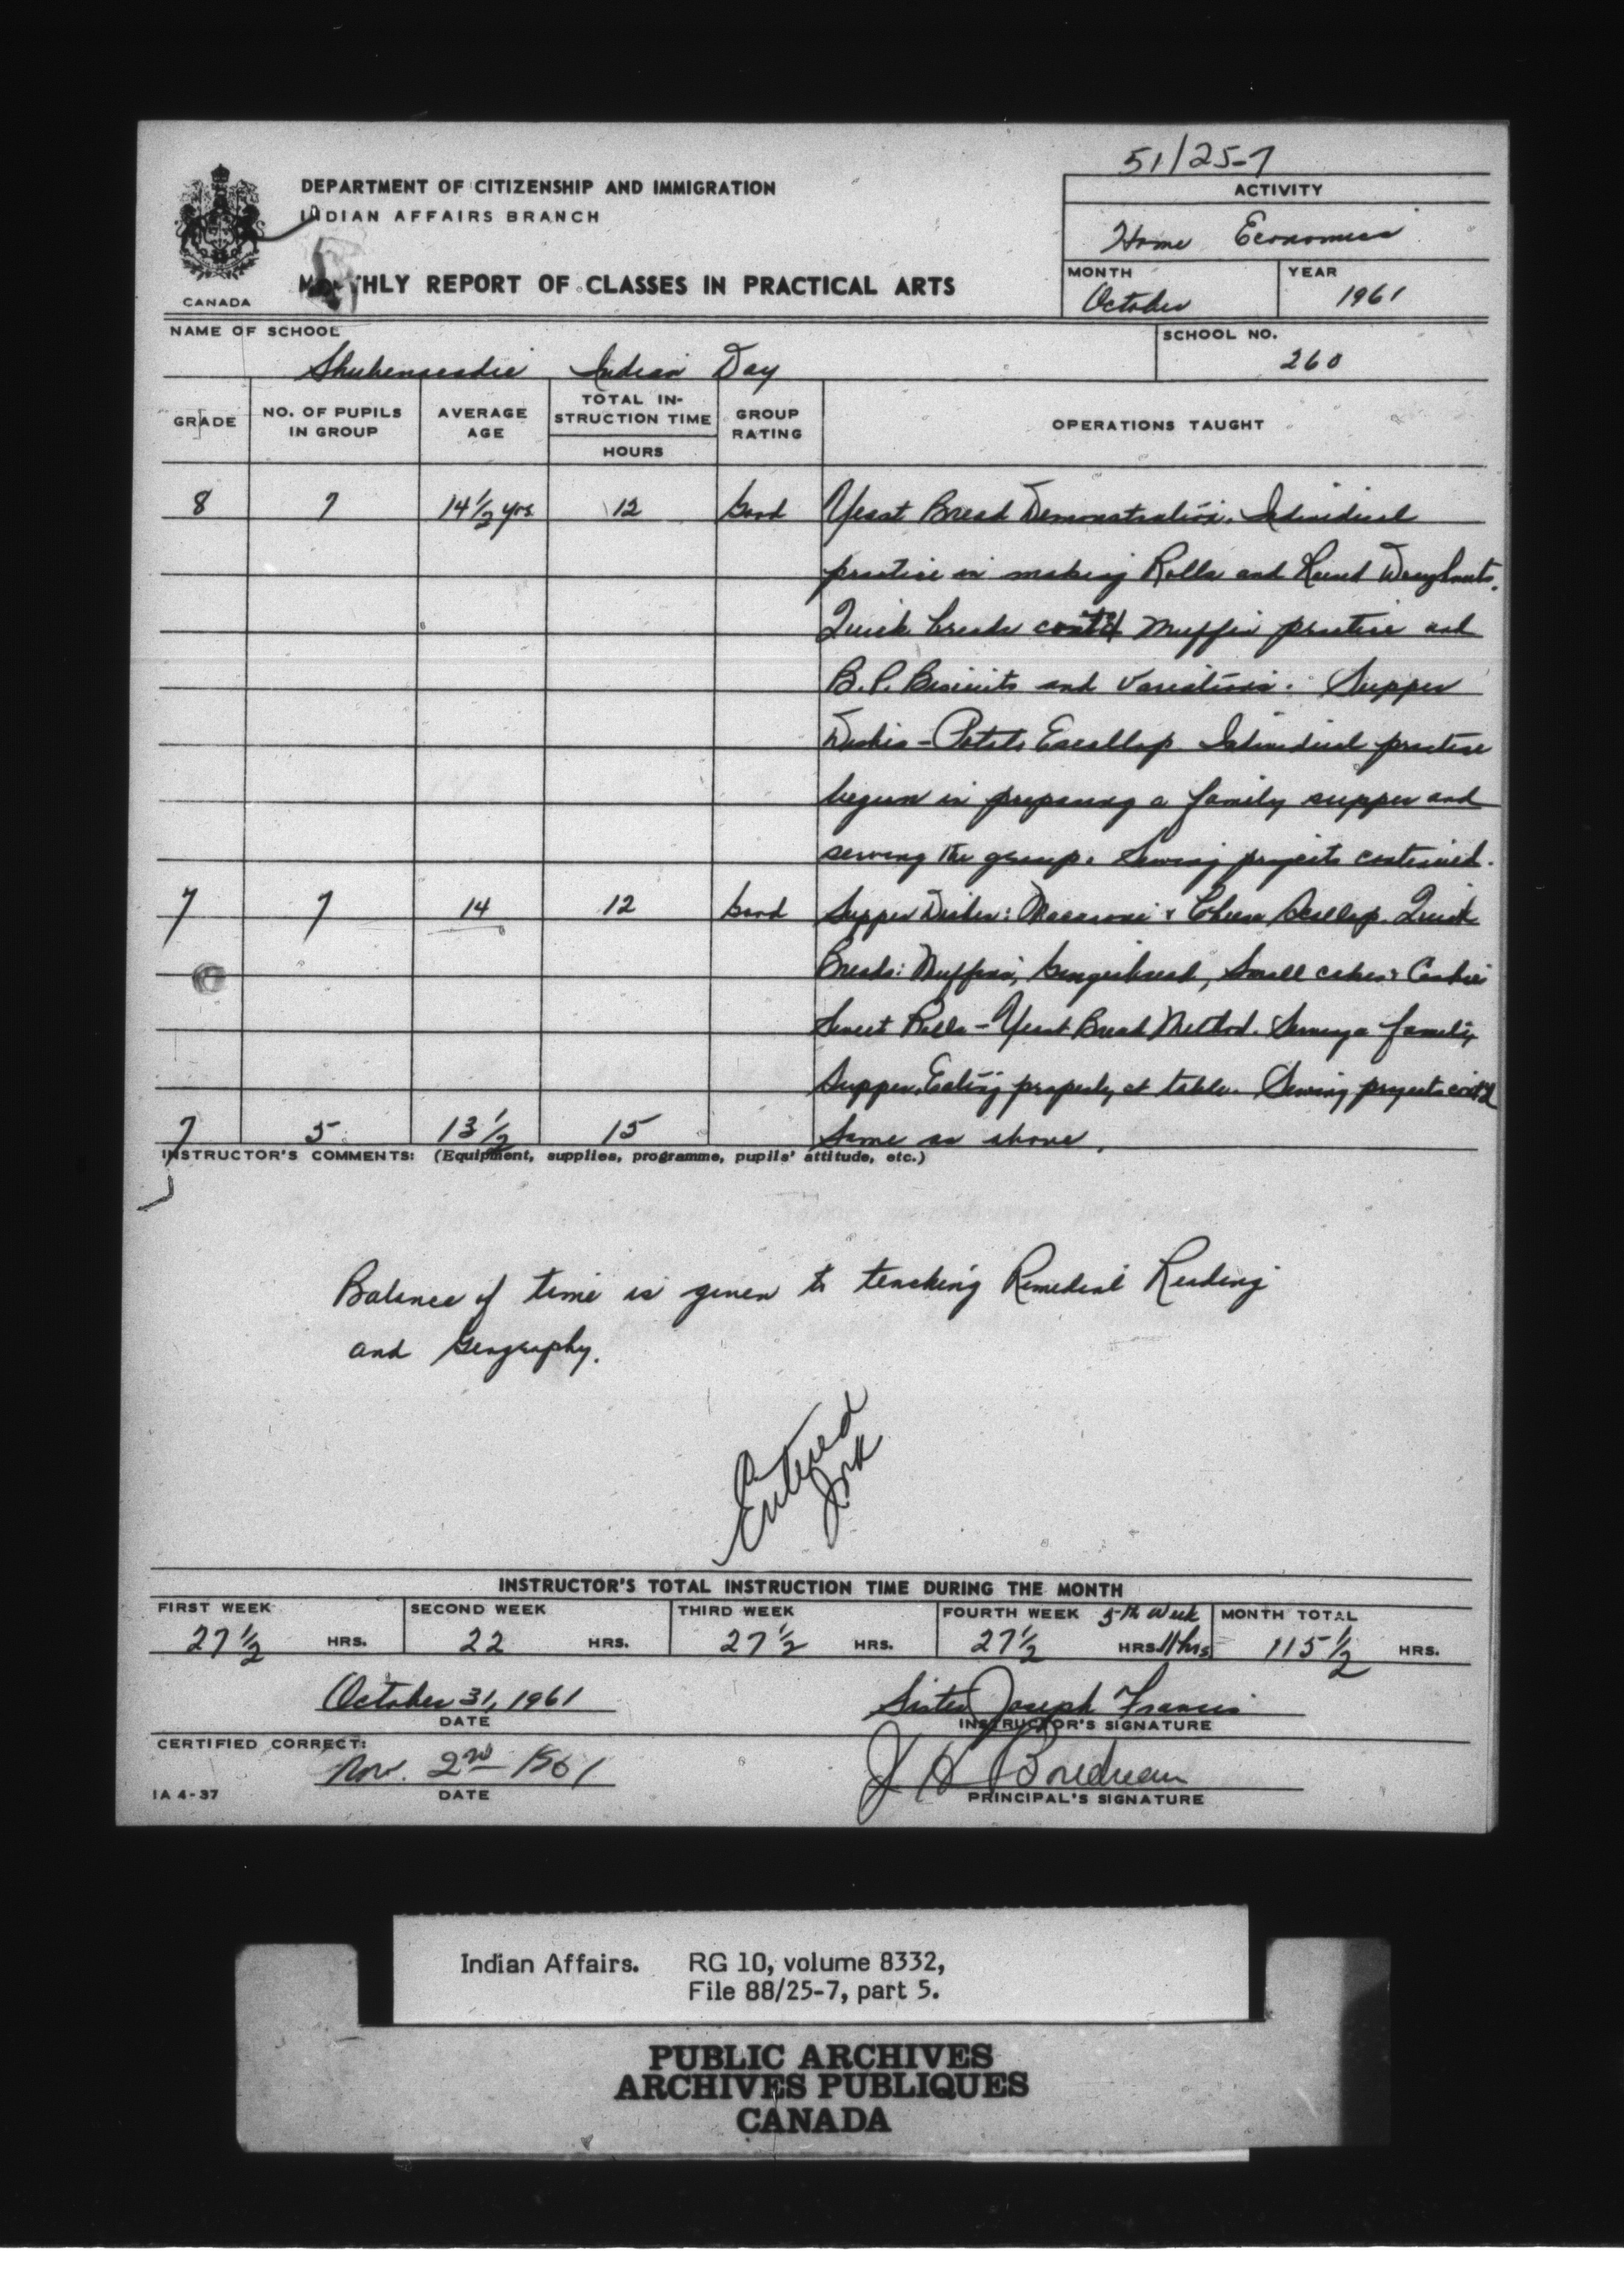 51/25-7
DEPARTMENT OF CITIZENSHIP AND IMMIGRATION
INDIAN AFFAIRS BRANCH
ACTIVITY
Home Economics
MONTHLY REPORT OF CLASSES IN PRACTICAL ARTS
CANADA
MONTH October YEAR 1961
NAME OF SCHOOL
Shubenacadie Indian Day
SCHOOL NO.
260
GRADE NO. OF PUPILS IN GROUP AVERAGE AGE TOTAL IN-STRUCTION TIME HOURS GROUP RATING OPERATIONS TAUGHT
8 7 14½ yrs. 12 Good Yeast Bread Demonstration. Individual
practice in making Rolls and Raised Doughnuts.
Quick breads cont'd Muffin practice and
B.P. Biscuits and variations. Supper
Dishes - Potato Escallop Individual practice
begun in preparing a family supper and
serving the group. Sewing projects continued.
7 7 14 12 Good Supper Dishes: Macaroni & Cheese Scallop. Quick
Breads: Muffins, Gingerbread, Small cakes & Cookies
Sweet Rolls - Yeast Bread Method. Serving a family
Supper, Eating properly at table. Sewing projects cont'd
7 5 13½ 15 Same as above.
INSTRUCTOR'S COMMENTS: (Equipment, supplies, programme, pupils' attitude, etc.)
Balance of time is given to teaching Remedial Reading
and Geography.
Entered
INSTRUCTOR'S TOTAL INSTRUCTION TIME DURING THE MONTH
FIRST WEEK SECOND WEEK THIRD WEEK FOURTH WEEK 5th Week MONTH TOTAL
27½ HRS. 22 HRS. 27½ HRS. 27½ HRS. 11 hrs 115½ HRS.
October 31, 1961 Sister Joseph Francis
DATE INSTRUCTOR'S SIGNATURE
CERTIFIED CORRECT:
Nov. 2nd 1961 Boudreau
IA 4-37 DATE PRINCIPAL'S SIGNATURE
Indian Affairs. RG 10, volume 8332,
File 88/25-7, part 5.
PUBLIC ARCHIVES
ARCHIVES PUBLIQUES
CANADA